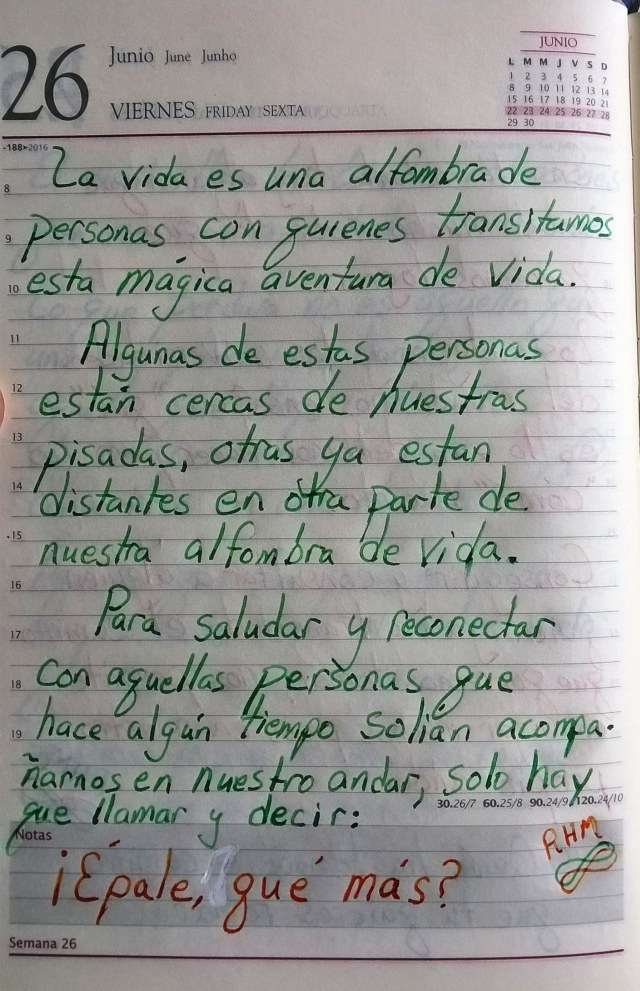 26
Junio June Junho
VIERNES FRIDAY SEXTA
JUNIO
L M M J V S D
1 2 3 4 5 6 7
8 9 10 11 12 13 14
15 16 17 18 19 20 21
22 23 24 25 26 27 28
29 30
-188▸2016
8 La vida es una alfombra de
9 personas con quienes transitamos
10 esta mágica aventura de vida.
11 Algunas de estas personas
12 están cercas de nuestras
13 pisadas, otras ya estan
14 distantes en otra parte de
15 nuestra alfombra de vida.
16
17 Para saludar y reconectar
18 con aquellas personas que
19 hace algún tiempo solían acompa-
ñarnos en nuestro andar, solo hay
30.26/7 60.25/8 90.24/9 120.24/10
que llamar y decir:
Notas
RHM
¡Épale, qué más?
Semana 26